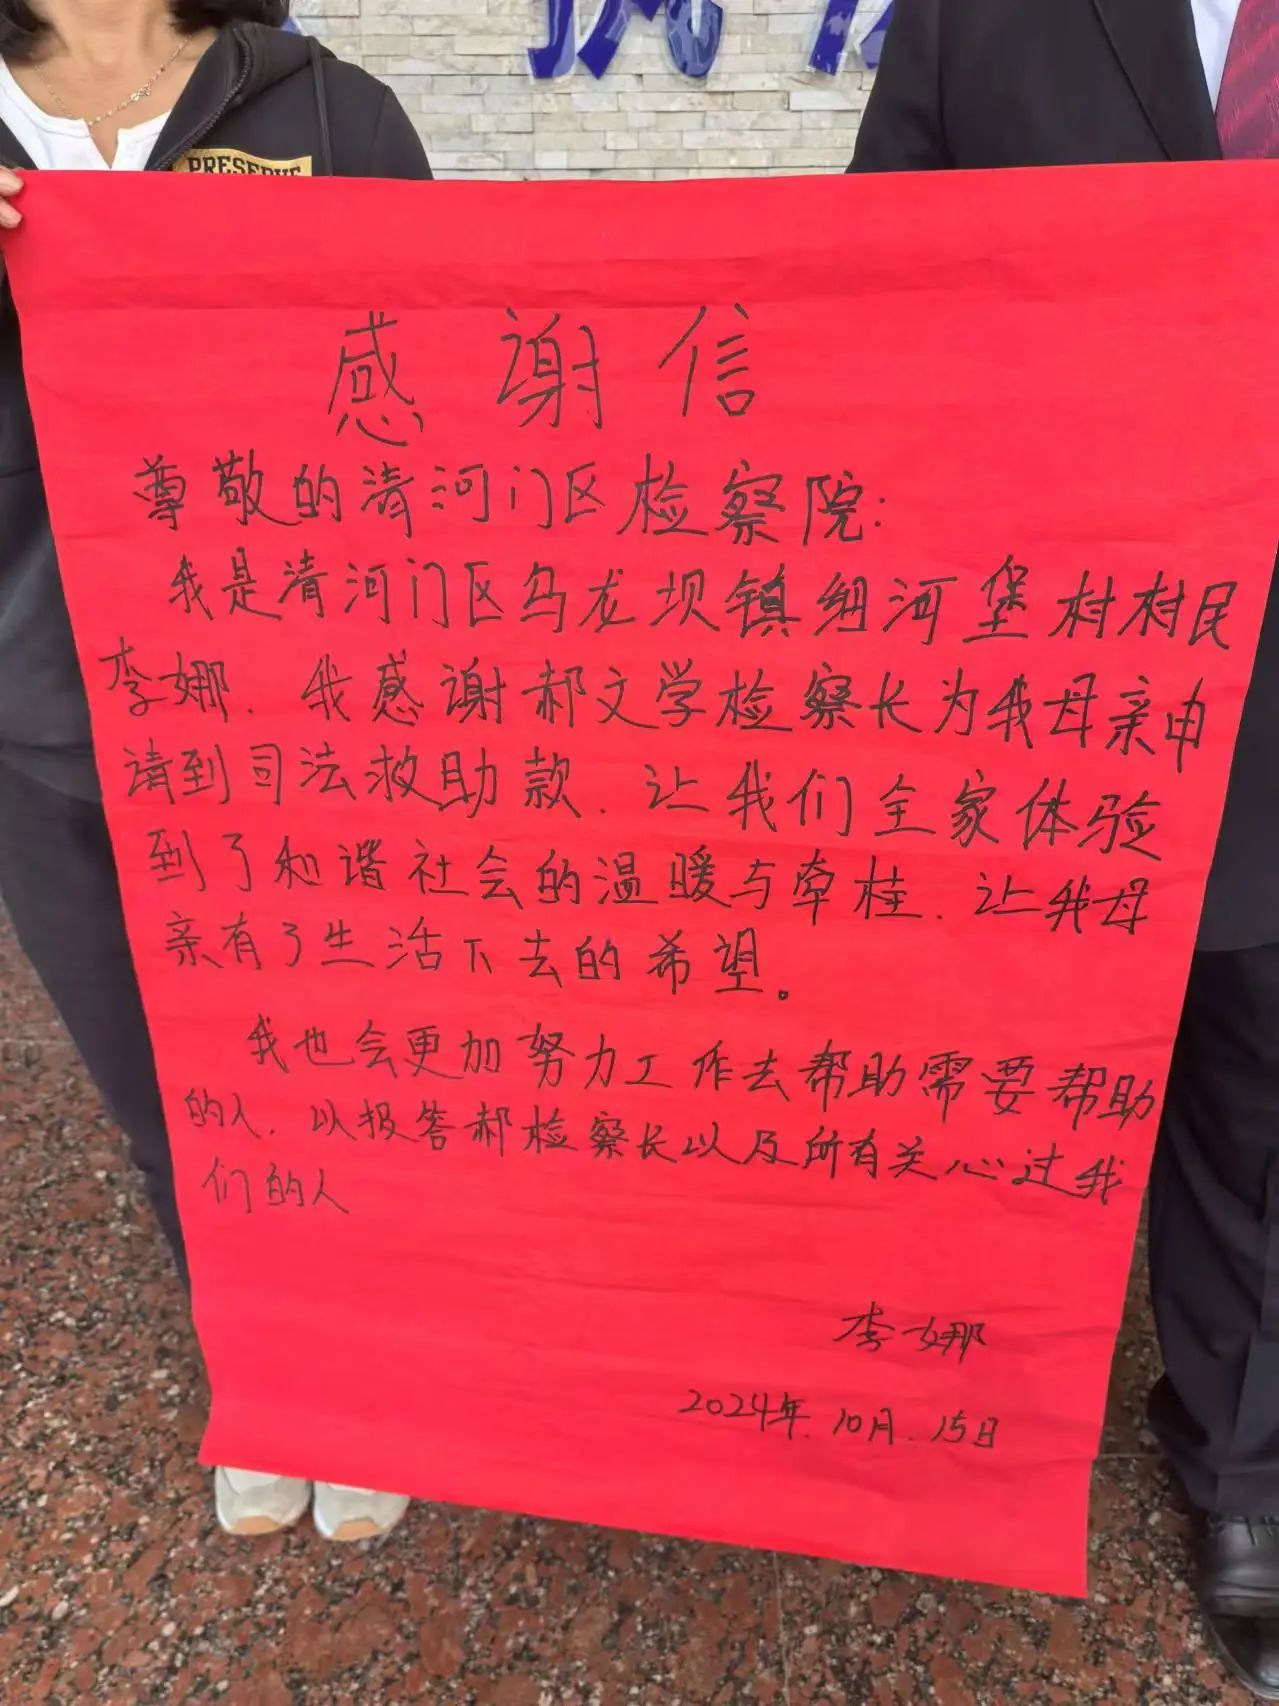 PRESERVE
感谢信
尊敬的清河门区检察院:
我是清河门区乌龙坝镇细河堡村村民
李娜.我感谢郝文学检察长为我母亲申
请到司法救助款.让我们全家体验
到了和谐社会的温暖与牵挂.让我母
亲有了生活下去的希望。
我也会更加努力工作去帮助需要帮助
的人.以报答郝检察长以及所有关心过我
们的人
李娜
2024年.10月.15日